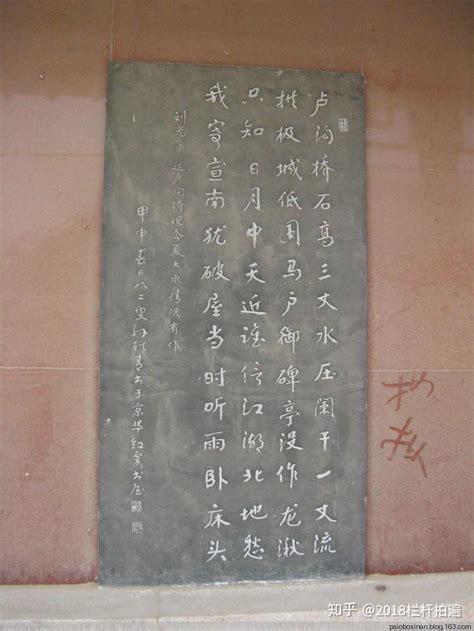 卢沟桥石高三丈水压阑干一丈流
拱极城低围马户御碑亭没作龙湫
只知日月中天近谁信江湖北地愁
我寄宣南犹破屋当时听雨卧床头
刘光第 过卢沟桥观今夏大水情况有作
甲申春日八二叟 书于京华红霞书屋
知乎 @2018栏杆拍遍
paioboxinan.blog.163.com